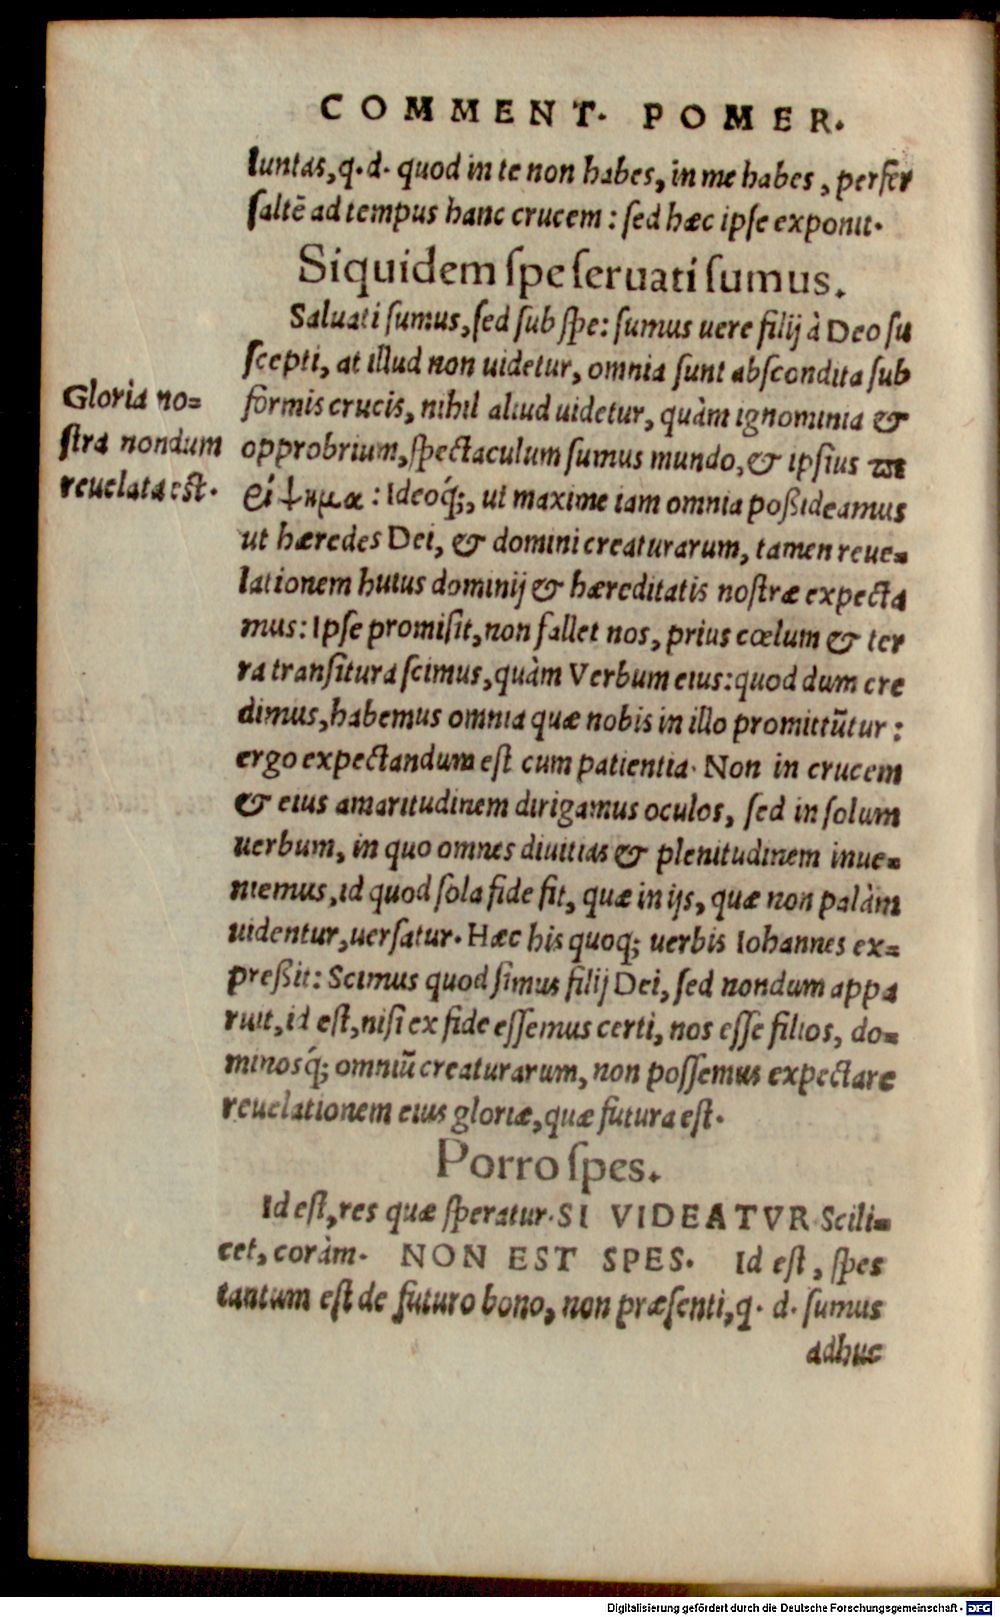 COMMENT. POMER.
luntas, q. d. quod in te non habes, in me habes, perfer
ſaltē ad tempus hanc crucem: ſed hæc ipſe exponit.
Siquidem ſpe ſeruati ſumus.
Saluati ſumus, ſed ſub ſpe: ſumus uere filij à Deo ſu
ſcepti, at illud non uidetur, omnia ſunt abſcondita ſub
Gloria no=
ſtra nondum
reuelata eſt.
formis crucis, nihil aliud uidetur, quàm ignominia &
opprobrium, ſpectaculum ſumus mundo, & ipſius πε
ρίψημα: Ideoq́;, ut maxime iam omnia poßideamus
ut hæredes Dei, & domini creaturarum, tamen reue=
lationem huius dominij & hæreditatis noſtræ expecta
mus: Ipſe promiſit, non fallet nos, prius cœlum & ter
ra tranſitura ſcimus, quàm Verbum eius: quod dum cre
dimus, habemus omnia quæ nobis in illo promittūtur:
ergo expectandum eſt cum patientia. Non in crucem
& eius amaritudinem dirigamus oculos, ſed in ſolum
uerbum, in quo omnes diuitias & plenitudinem inue=
niemus, id quod ſola fide fit, quæ in ijs, quæ non palàm
uidentur, uerſatur. Hæc his quoq; uerbis Iohannes ex=
preßit: Scimus quod ſimus filij Dei, ſed nondum appa
ruit, id eſt, niſi ex fide eſſemus certi, nos eſſe filios, do=
minosq́; omniū creaturarum, non poſſemus expectare
reuelationem eius gloriæ, quæ futura eſt.
Porro ſpes.
Id eſt, res quæ ſperatur. SI VIDEATVR Scili=
cet, coràm. NON EST SPES. Id eſt, ſpes
tantum eſt de futuro bono, non præſenti, q. d. ſumus
adhuc
Digitalisierung gefördert durch die Deutsche Forschungsgemeinschaft - DFG